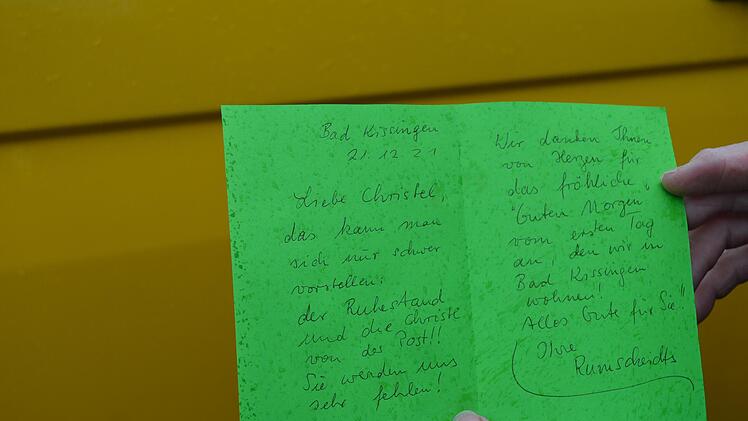 Bad Kissingen
21.12.21
Liebe Christel,
das kann man
sich nur schwer
vorstellen:
der Ruhestand
und die Christl
von der Post!!
Sie werden uns
sehr fehlen!
Wir danken Ihnen
von Herzen für
das fröhliche
"Guten Morgen"
vom ersten Tag
an, den wir in
Bad Kissingen
wohnen!
Alles Gute für Sie!!
Ihre